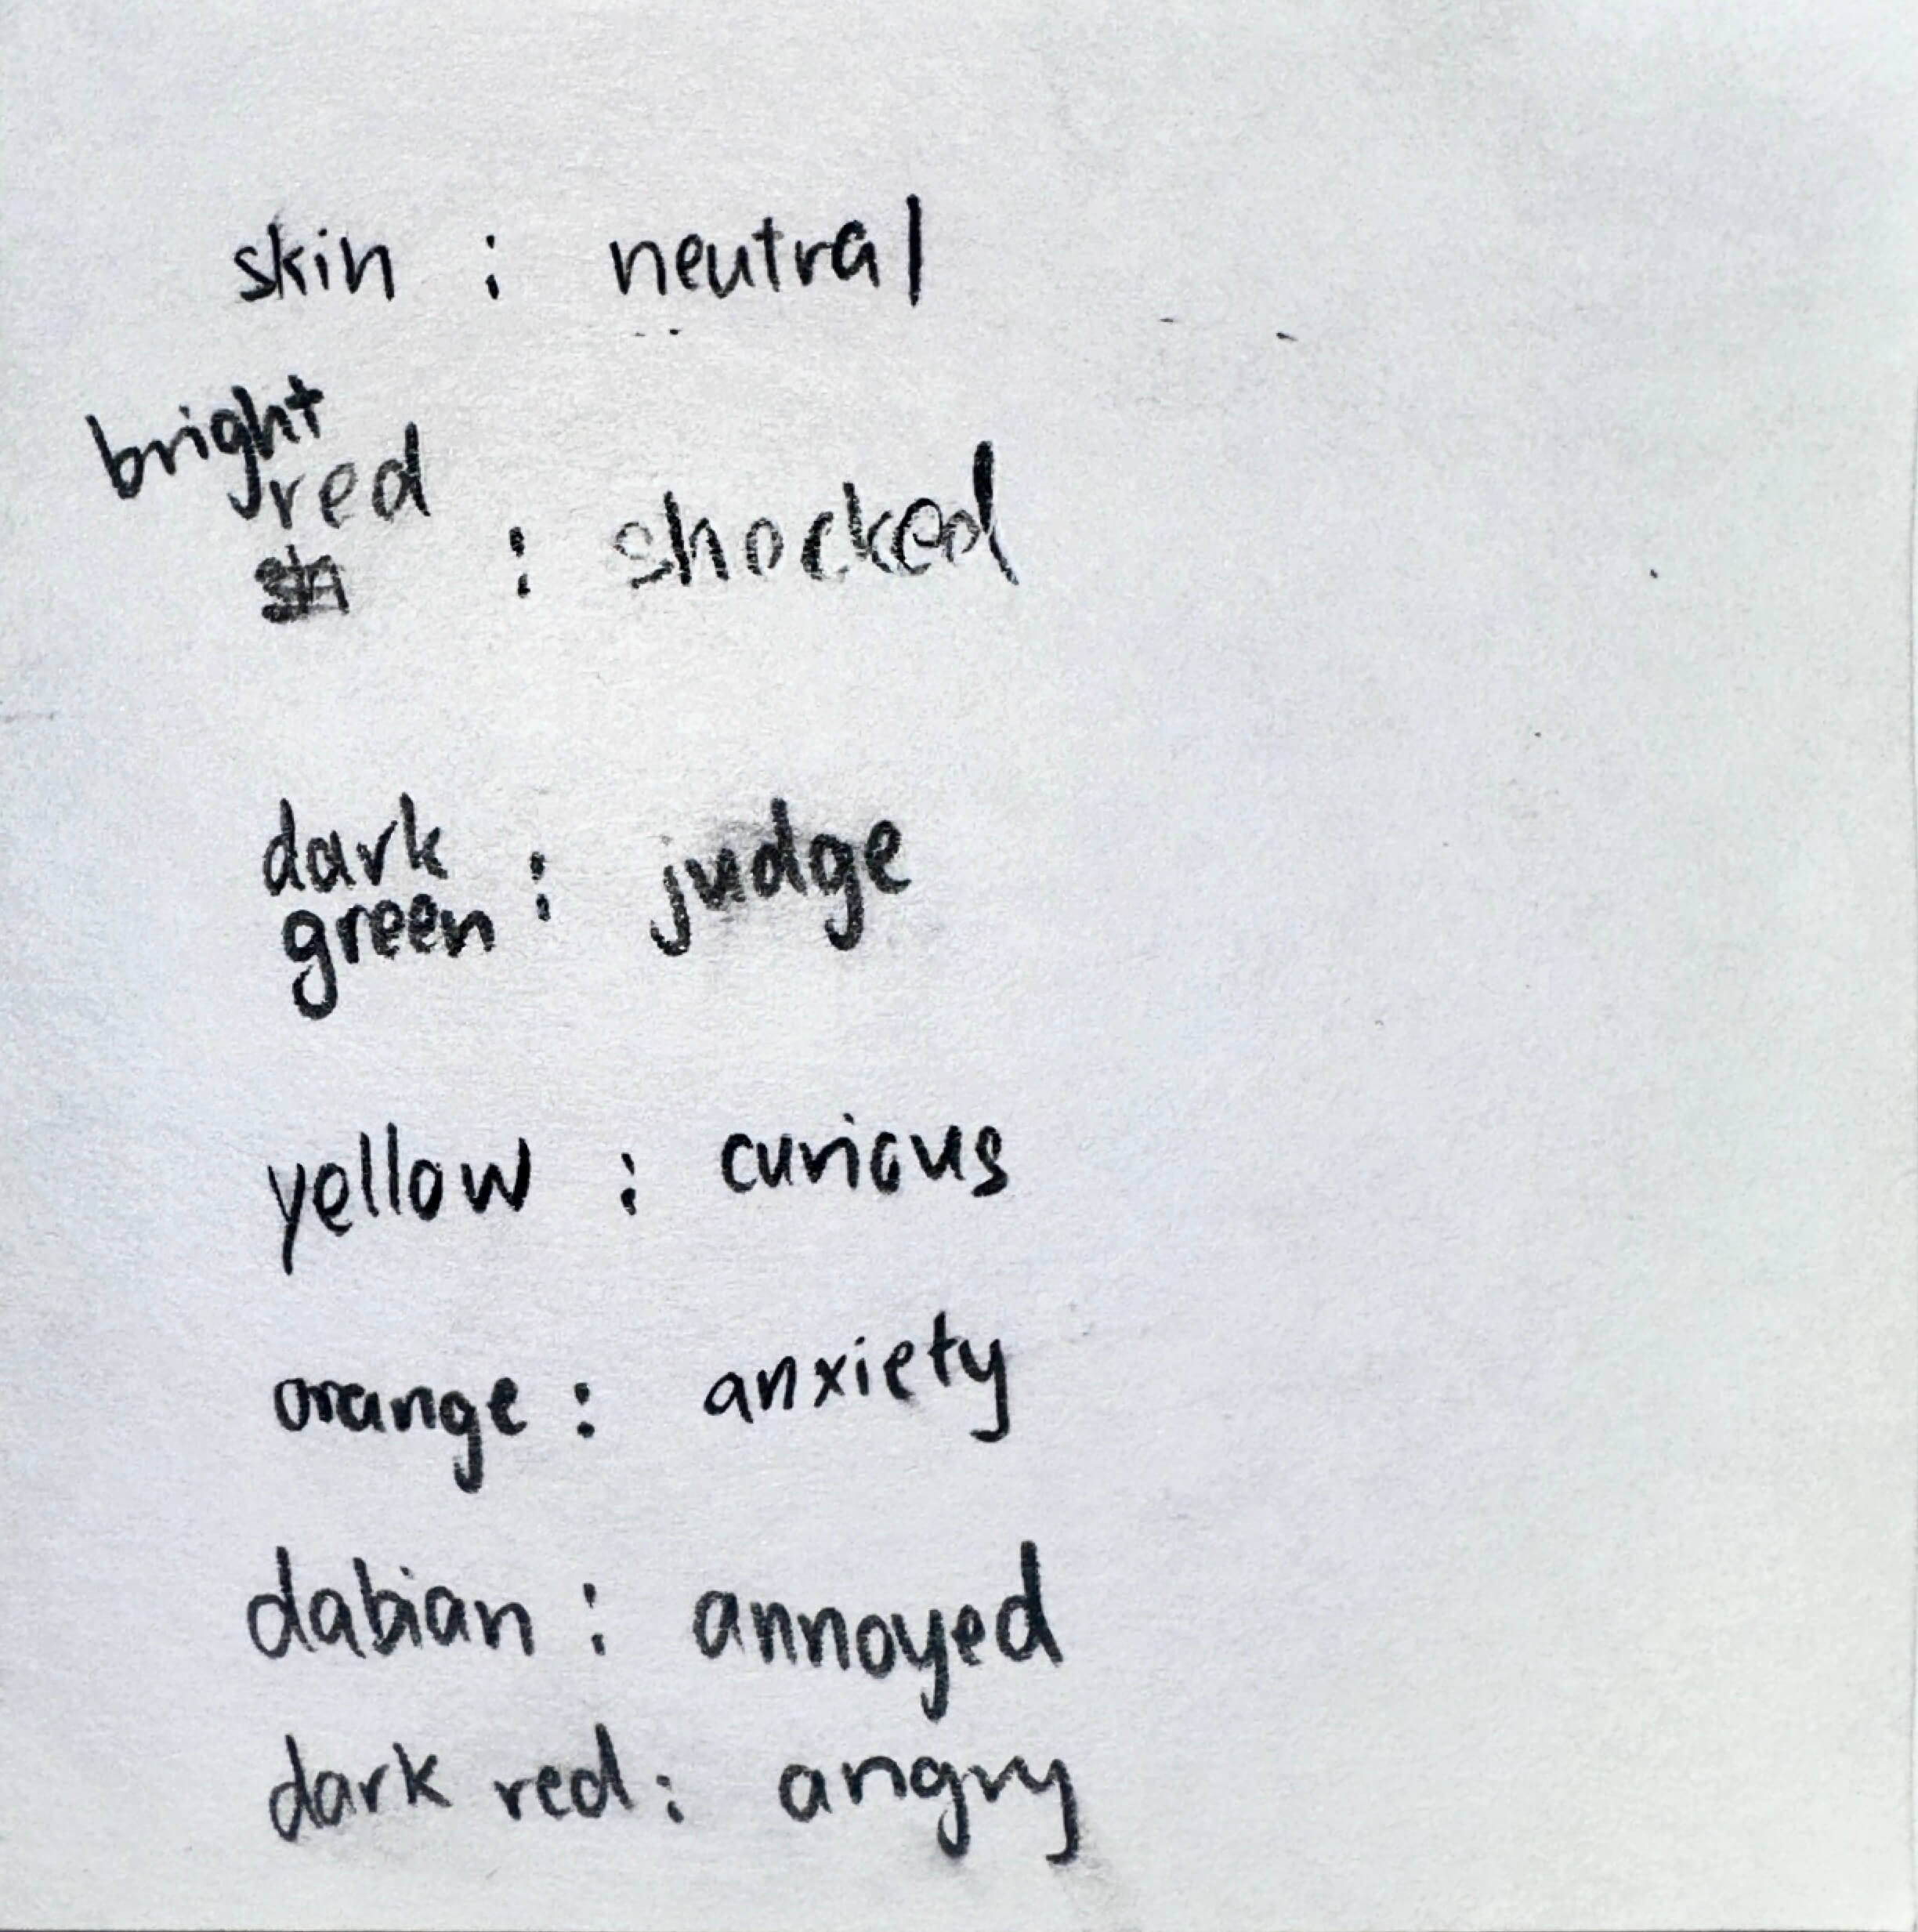 skin : neutral
bright
red
: shocked
dark
green : judge
yellow : curious
orange : anxiety
dabian : annoyed
dark red : angry